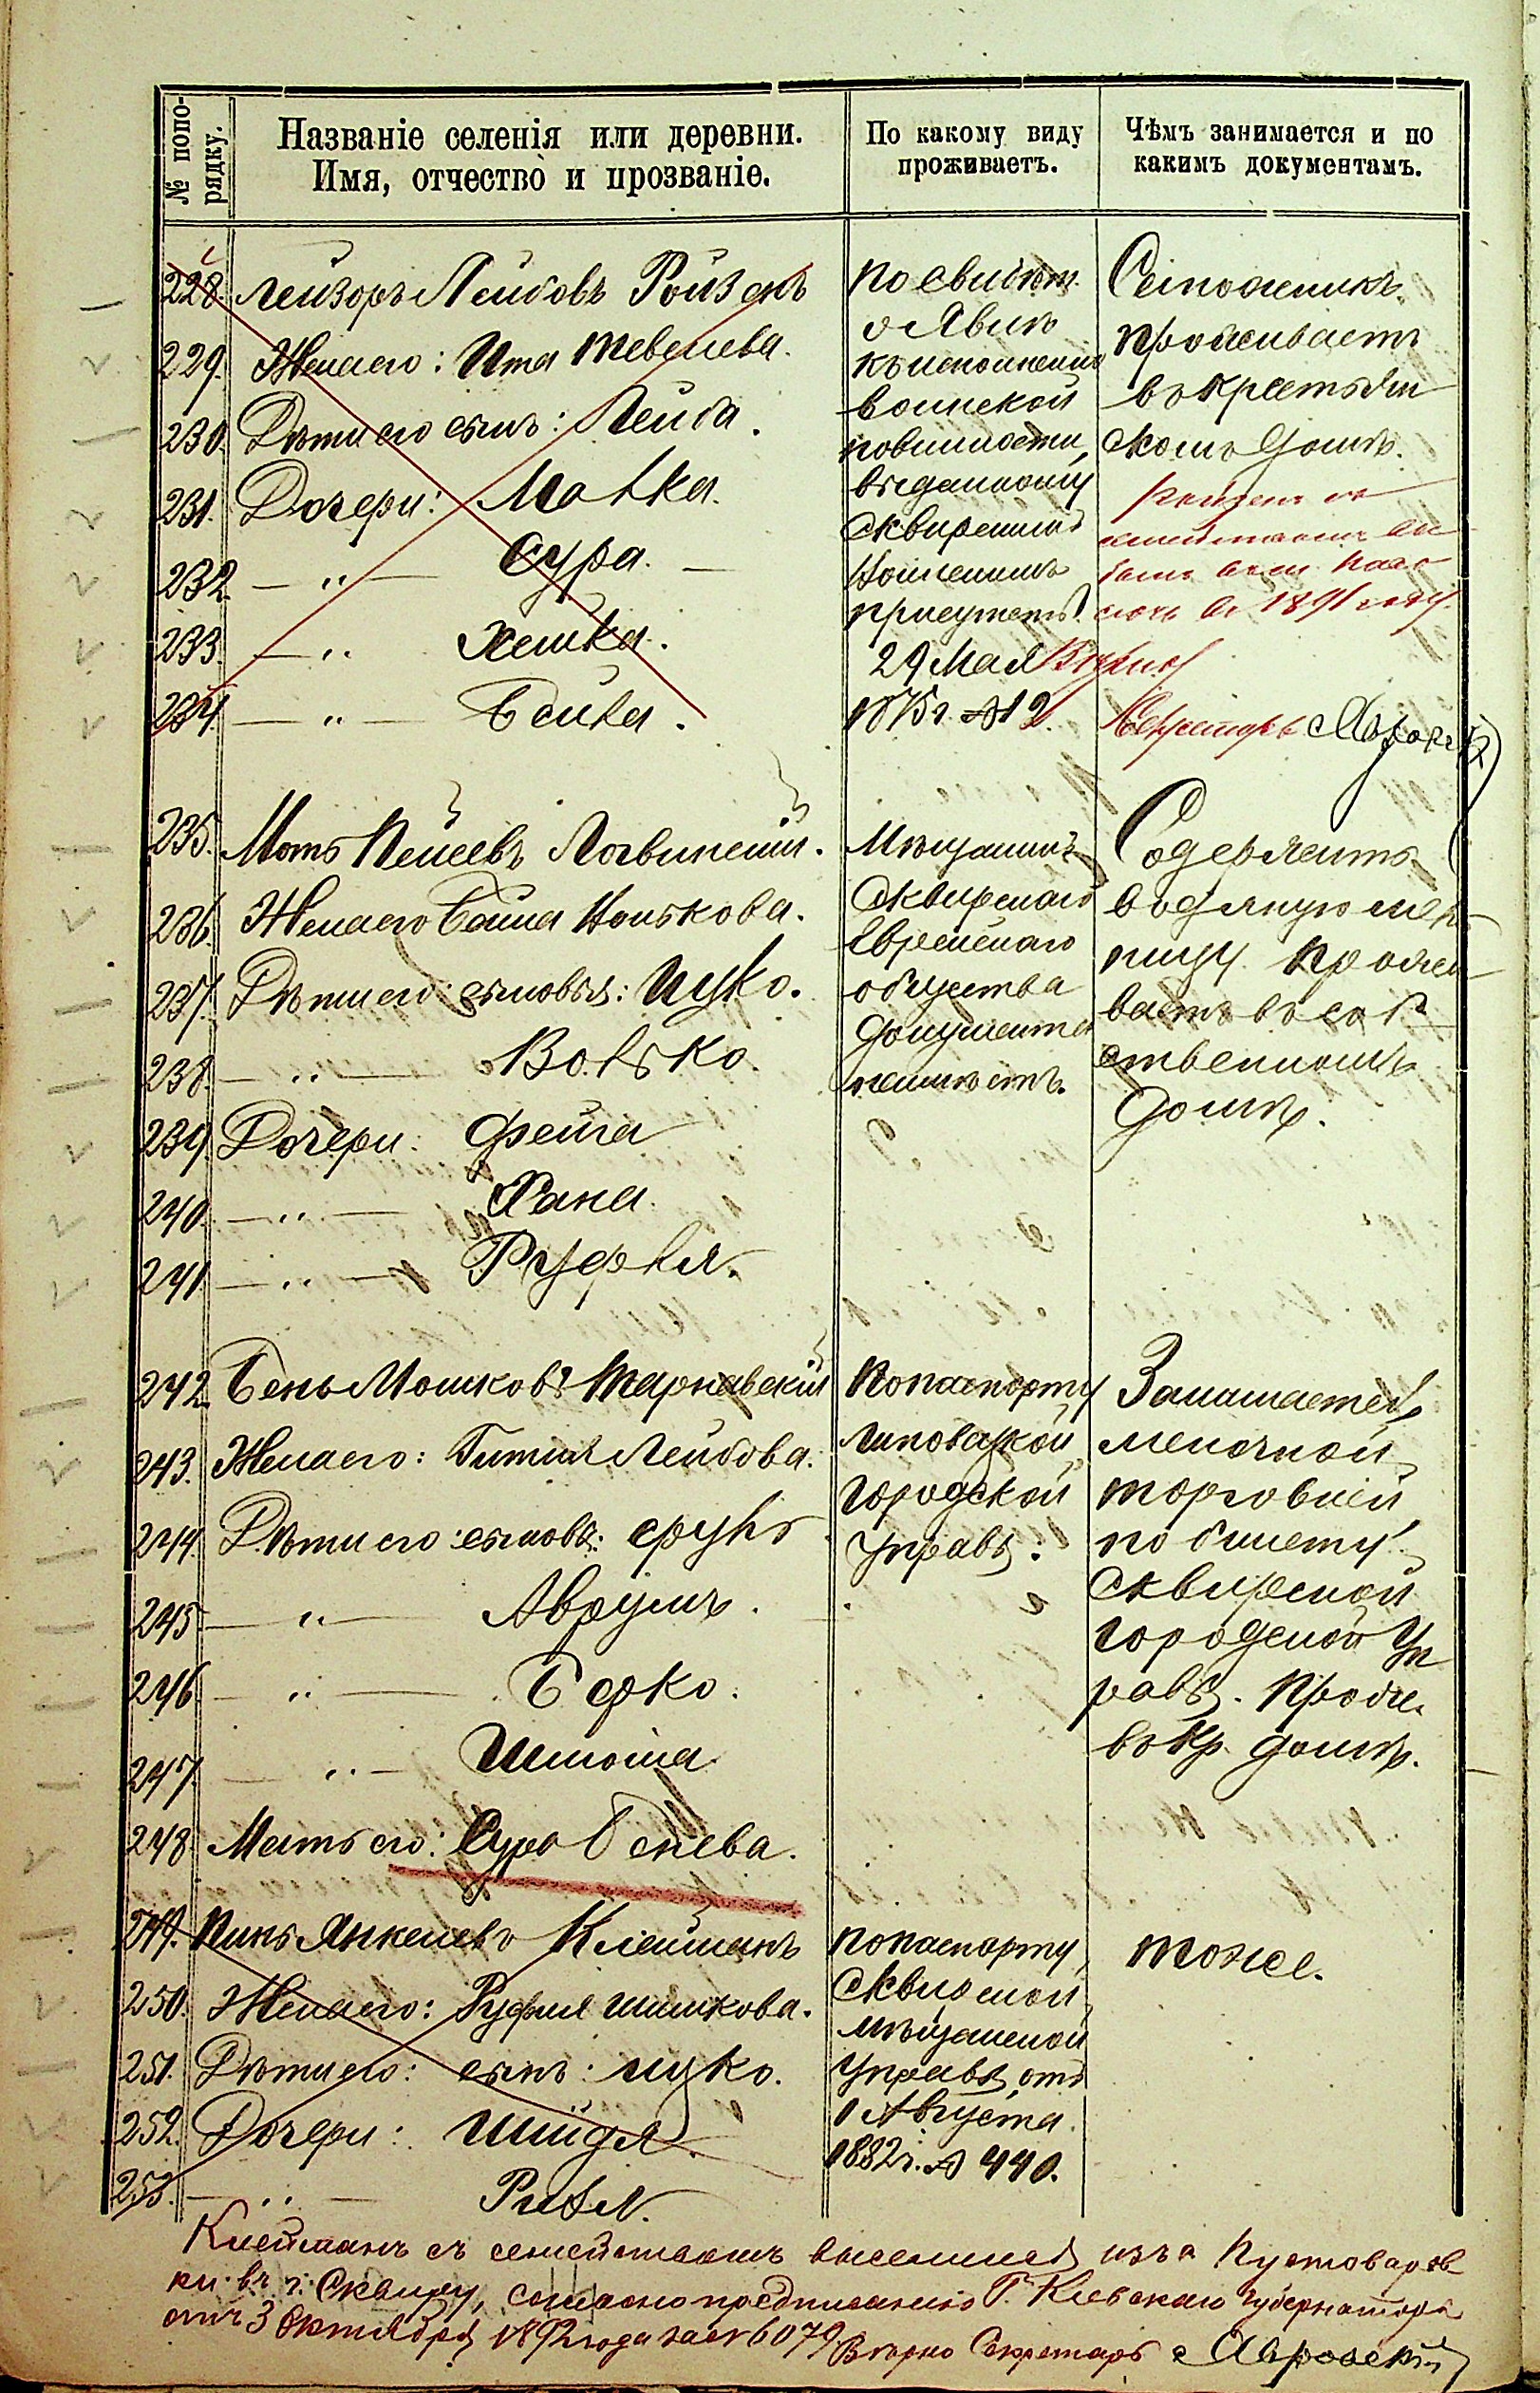 № попо-
рядку.
Названіе селенія или деревни.
Имя, отчество и прозваніе.
По какому виду
проживаетъ.
Чѣмъ занимается и по
какимъ документамъ.
228. Лейзоръ Лейбовъ Ройзенъ
229. Жена его: Ита Тевелева.
230. Дѣти его сынъ: Лейба.
231. Дочери: Малка.
232. — „ — Сура. —
233. — „ Хешка.
234. — „ — Бейла.
По свидѣт.
о явкѣ
къ исполненію
воинской
повинности,
выданному
Сквирскимъ
присутств.
29 Мая
1875 г. № 12.
проживаетъ
въ крестьян
скомъ домѣ.
въ 1891 году.
Вѣрно
Секретарь
235. Моть Пейсевъ Логвинскій.
236. Жена его Бейла Ицькова.
237. Дѣти его: сыновья: Ицко.
238. — „ — Волько.
239. Дочери: Фейга
240. — „ — Хана.
241. — „ — Руфля.
Мѣщанинъ
Сквирскаго
Еврейскаго
общества
документа
неимѣетъ.
Содержитъ
водяную мел
ницу. Прожи
ваетъ въ соб
ственномъ
домѣ.
242. Бень Мошковъ Тарнавскій
243. Жена его: Гитля Лейбова.
244. Дѣти его: сыновья: Сруль
245 — „ — Аврумъ.
246. — „ — Берко.
247. — „ — Шлойма.
248. Мать его: Сура Бенева.
По паспорту
Липовецкой
Городской
Управы.
Занимается
мелочной
торговлей
по билету
Сквирской
городской Уп
равы. Прожи.
въ кр. домѣ.
249. Пинь Янкелевъ Клейманъ
250. Жена его: Руфля Шлимкова.
251. Дѣти его: сынъ: Ицко.
252. Дочери: Шейдля.
253. — „ — Ривля.
по паспорту
Сквирской
мѣщанской
Управы отъ
1 Августа
1882 г. № 440.
тоже.
Клейманъ съ семействомъ выселился изъ с. Пустоваров-
ки въ г. Сквиру, согласно предписанію Г. Кіевскаго Губернатора
отъ 3 Октября 1892 года за № 6079. Вѣрно Секретарь